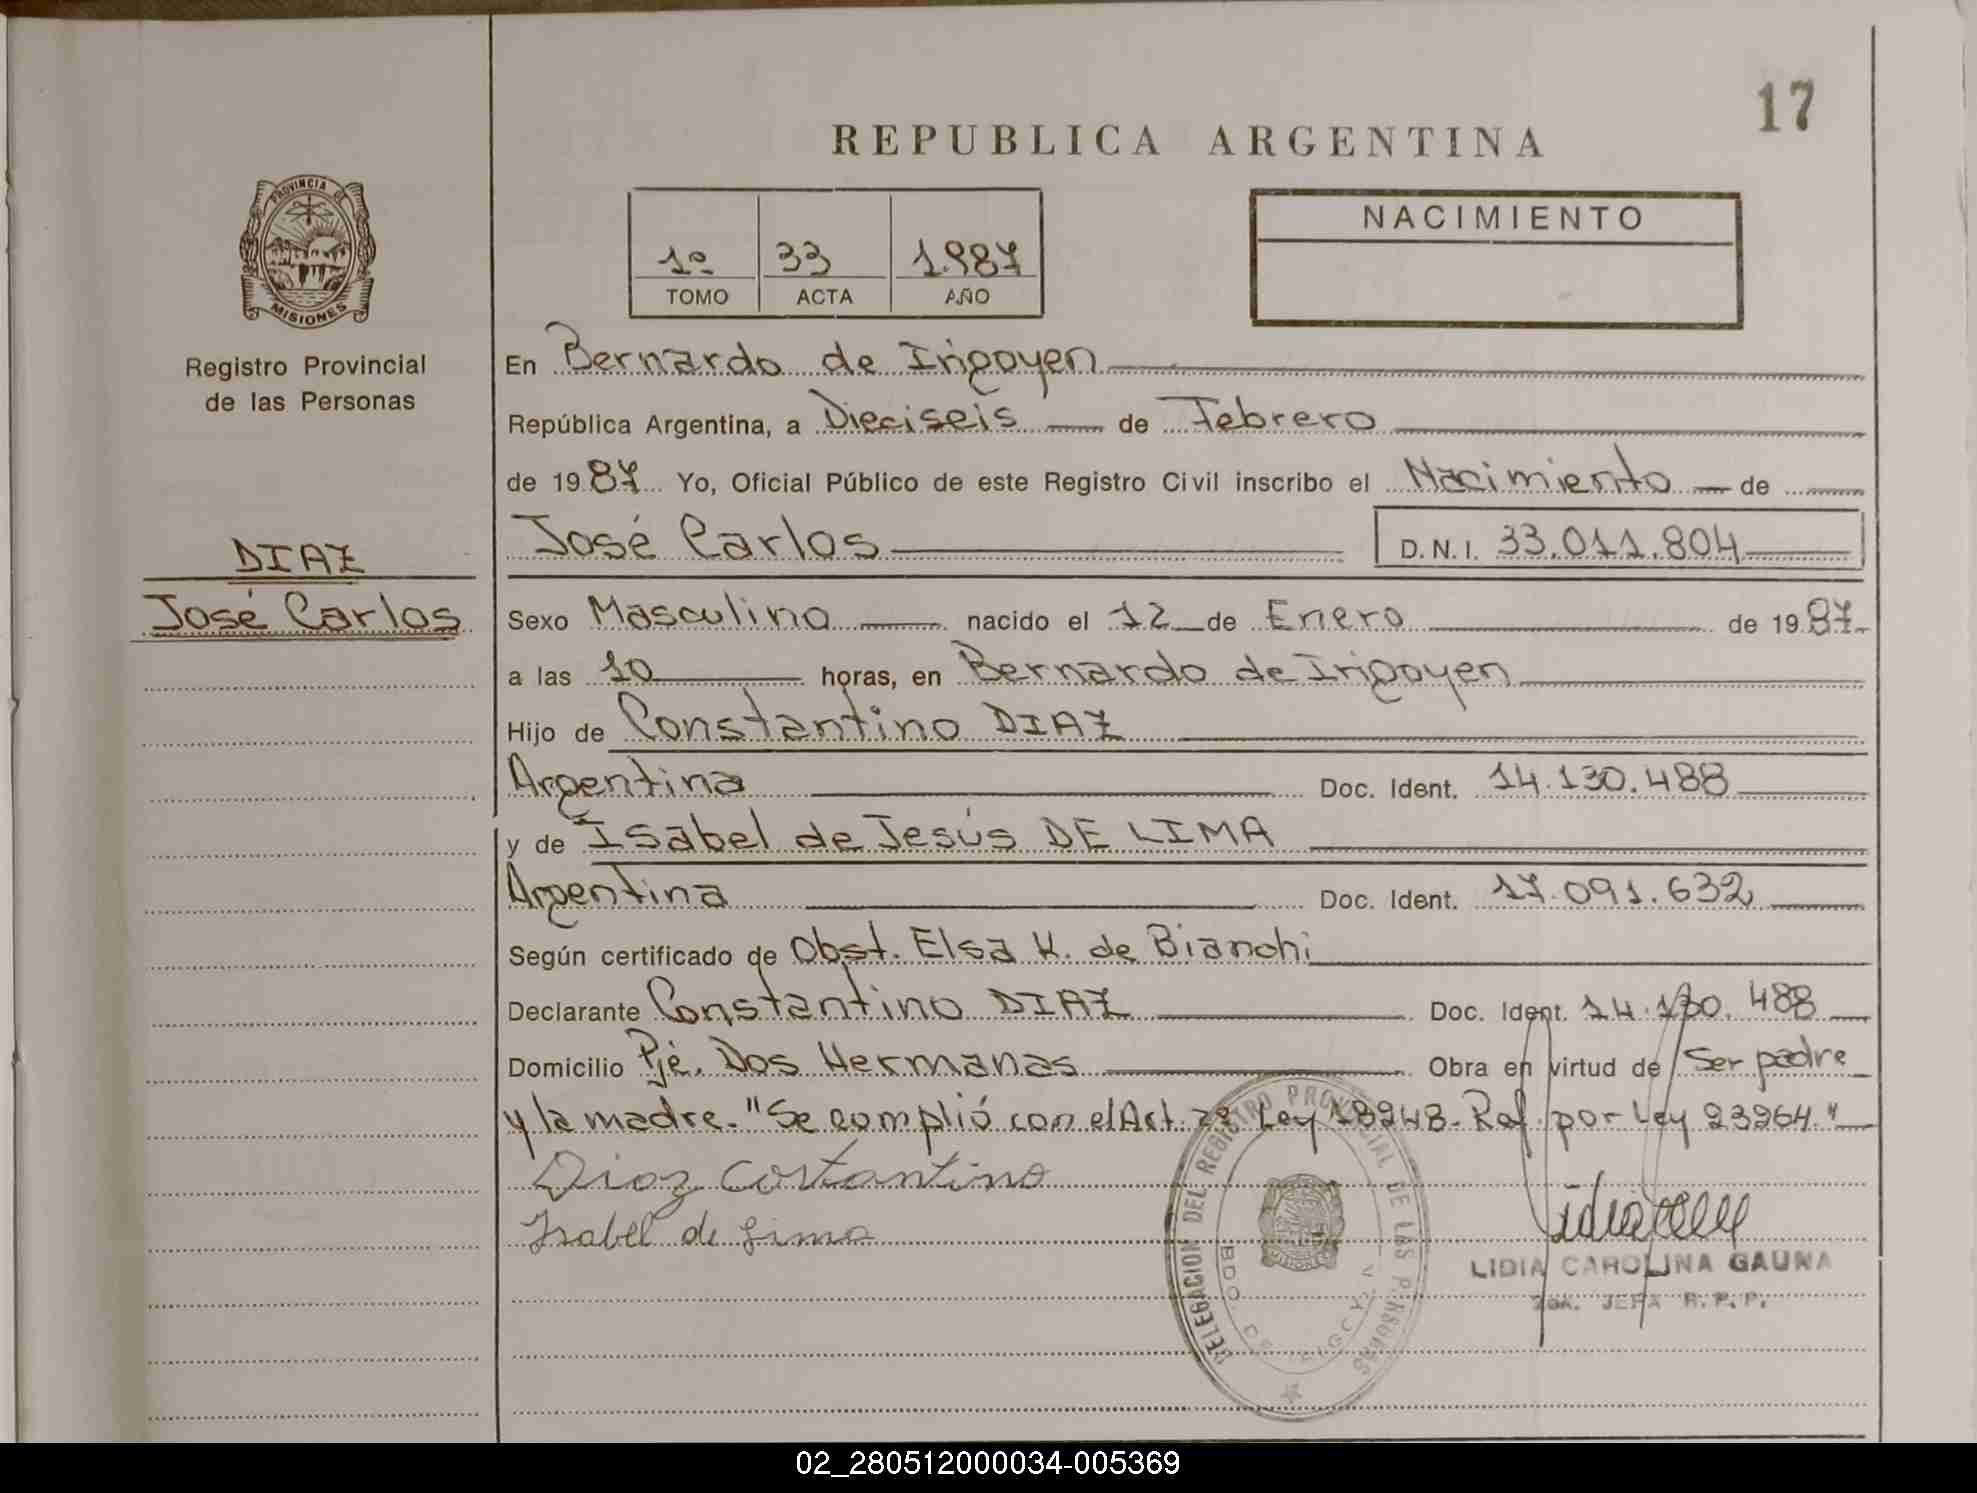 17
REPUBLICA ARGENTINA
PROVINCIA DE
MISIONES
1º 33 1.987
TOMO ACTA AÑO
NACIMIENTO
Registro Provincial
de las Personas
En Bernardo de Irigoyen
República Argentina, a Dieciseis de Febrero
de 19 87 Yo, Oficial Público de este Registro Civil inscribo el Nacimiento de
José Carlos D.N.I. 33.011.804
DIAZ
José Carlos
Sexo Masculino nacido el 12 de Enero de 19 87
a las 10 horas, en Bernardo de Irigoyen
Hijo de Constantino DIAZ
Argentina Doc. Ident. 14.130.488
y de Isabel de Jesús DE LIMA
Argentina Doc. Ident. 17.091.632
Según certificado de Obst. Elsa K. de Bianchi
Declarante Constantino DIAZ Doc. Ident. 14.130.488
Domicilio Pje. Dos Hermanas Obra en virtud de Ser padre
y la madre. "Se complió con el Art. 2º Ley 18248. Ref. por Ley 23264."
Diaz Costantino
Isabel de Lima
DELEGACION DEL REGISTRO PROVINCIAL DE LAS PERSONAS
BDO. DE IRIGOYEN
LIDIA CAROLINA GAUNA
JEFA R.P.P.
02_280512000034-005369